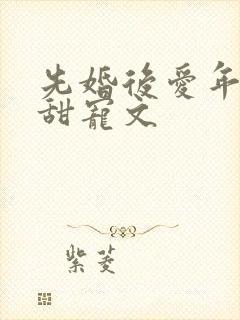 先婚後愛年
甜寵文
紫菱